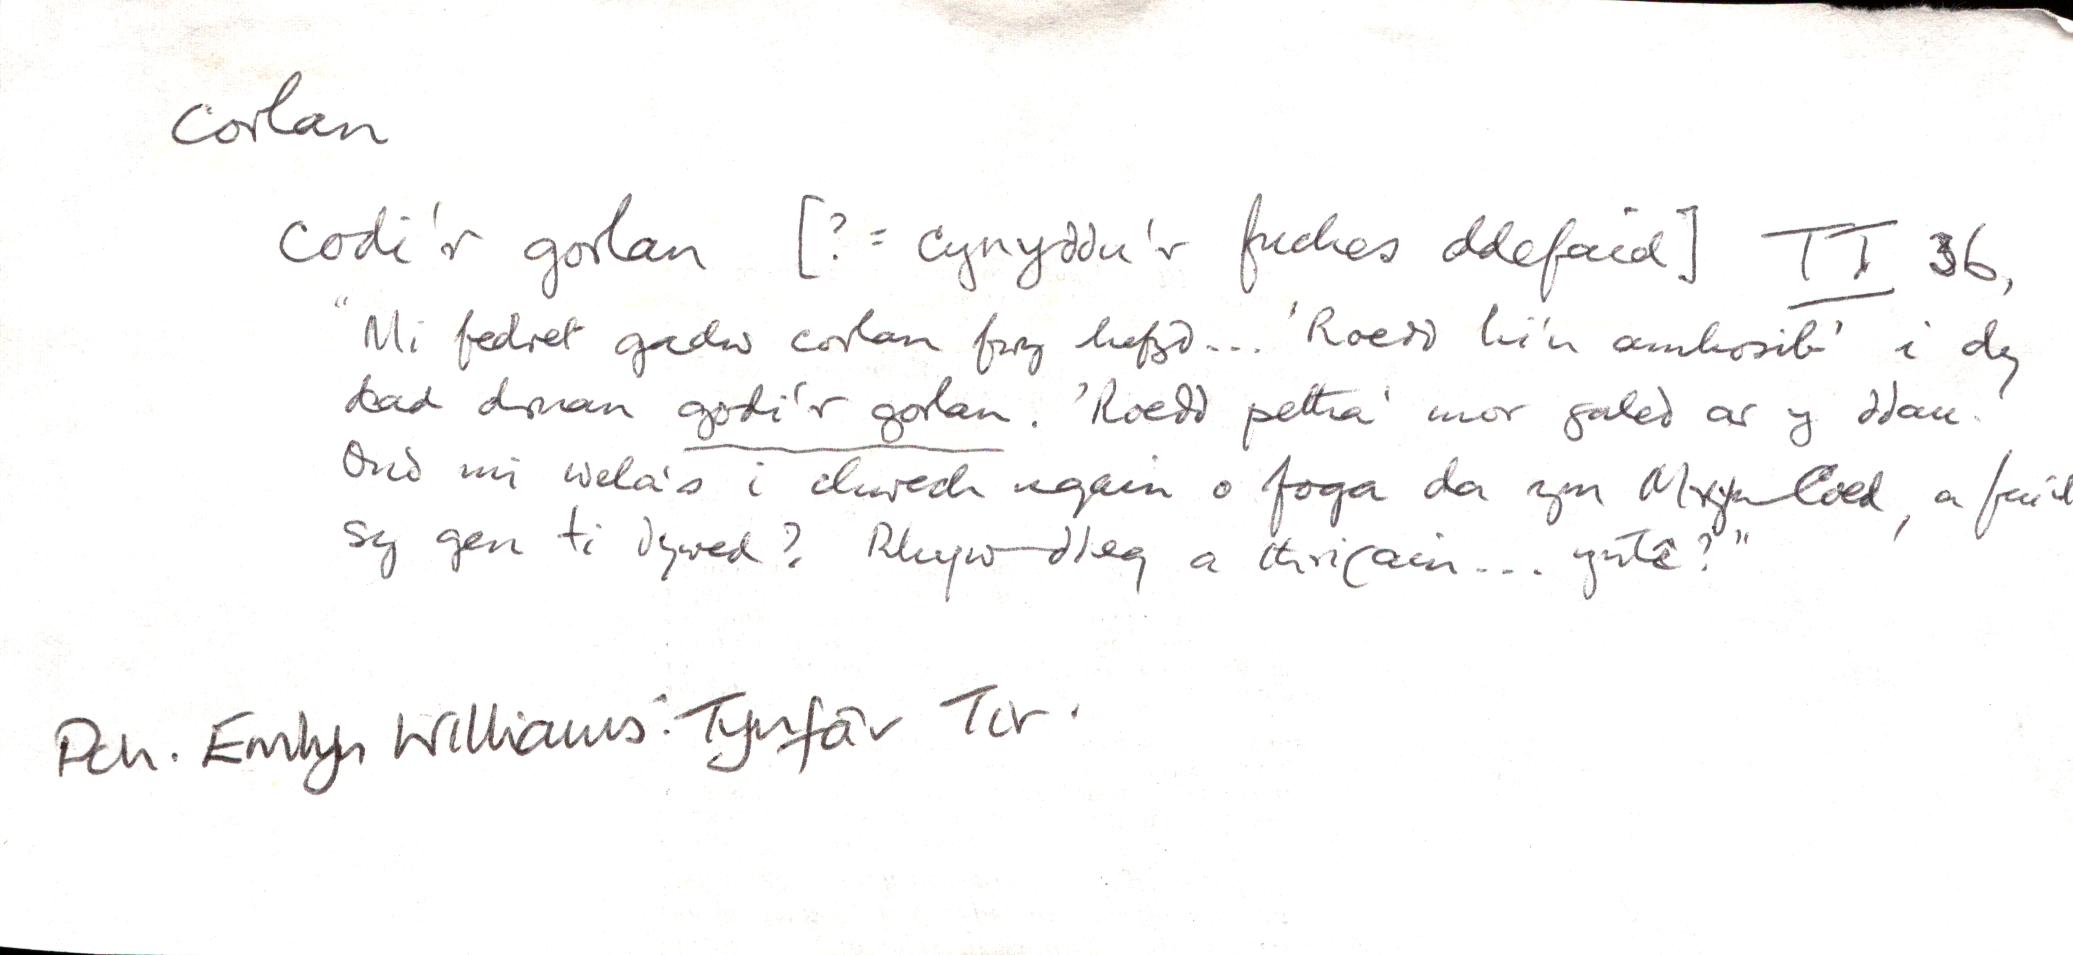 Corlan
Codi'r gorlan [? = Cynyddu'r fuches ddefaid] TT 36,
"Mi fedret gadw corlan fwy hefyd... 'Roedd hi'n amhosib' i dy
dad druan godi'r gorlan. 'Roedd petha' mor galed ar y ddau.
Ond mi wela's i chwech ugain o foga da ym MrynCoed, a faint
sy gen ti dywed? Rhyw ddeg a thrigain... yntê?"
Pch. Emlyn Williams: Tynfâr Tir.